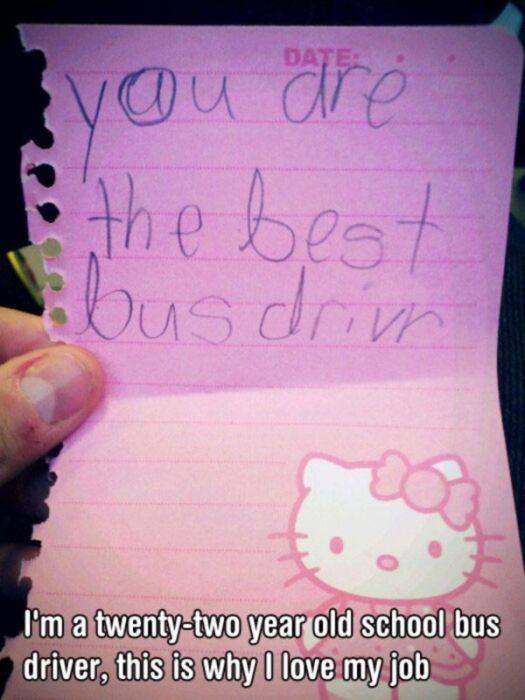 DATE:
you are
the best
bus drivr
I'm a twenty-two year old school bus
driver, this is why I love my job